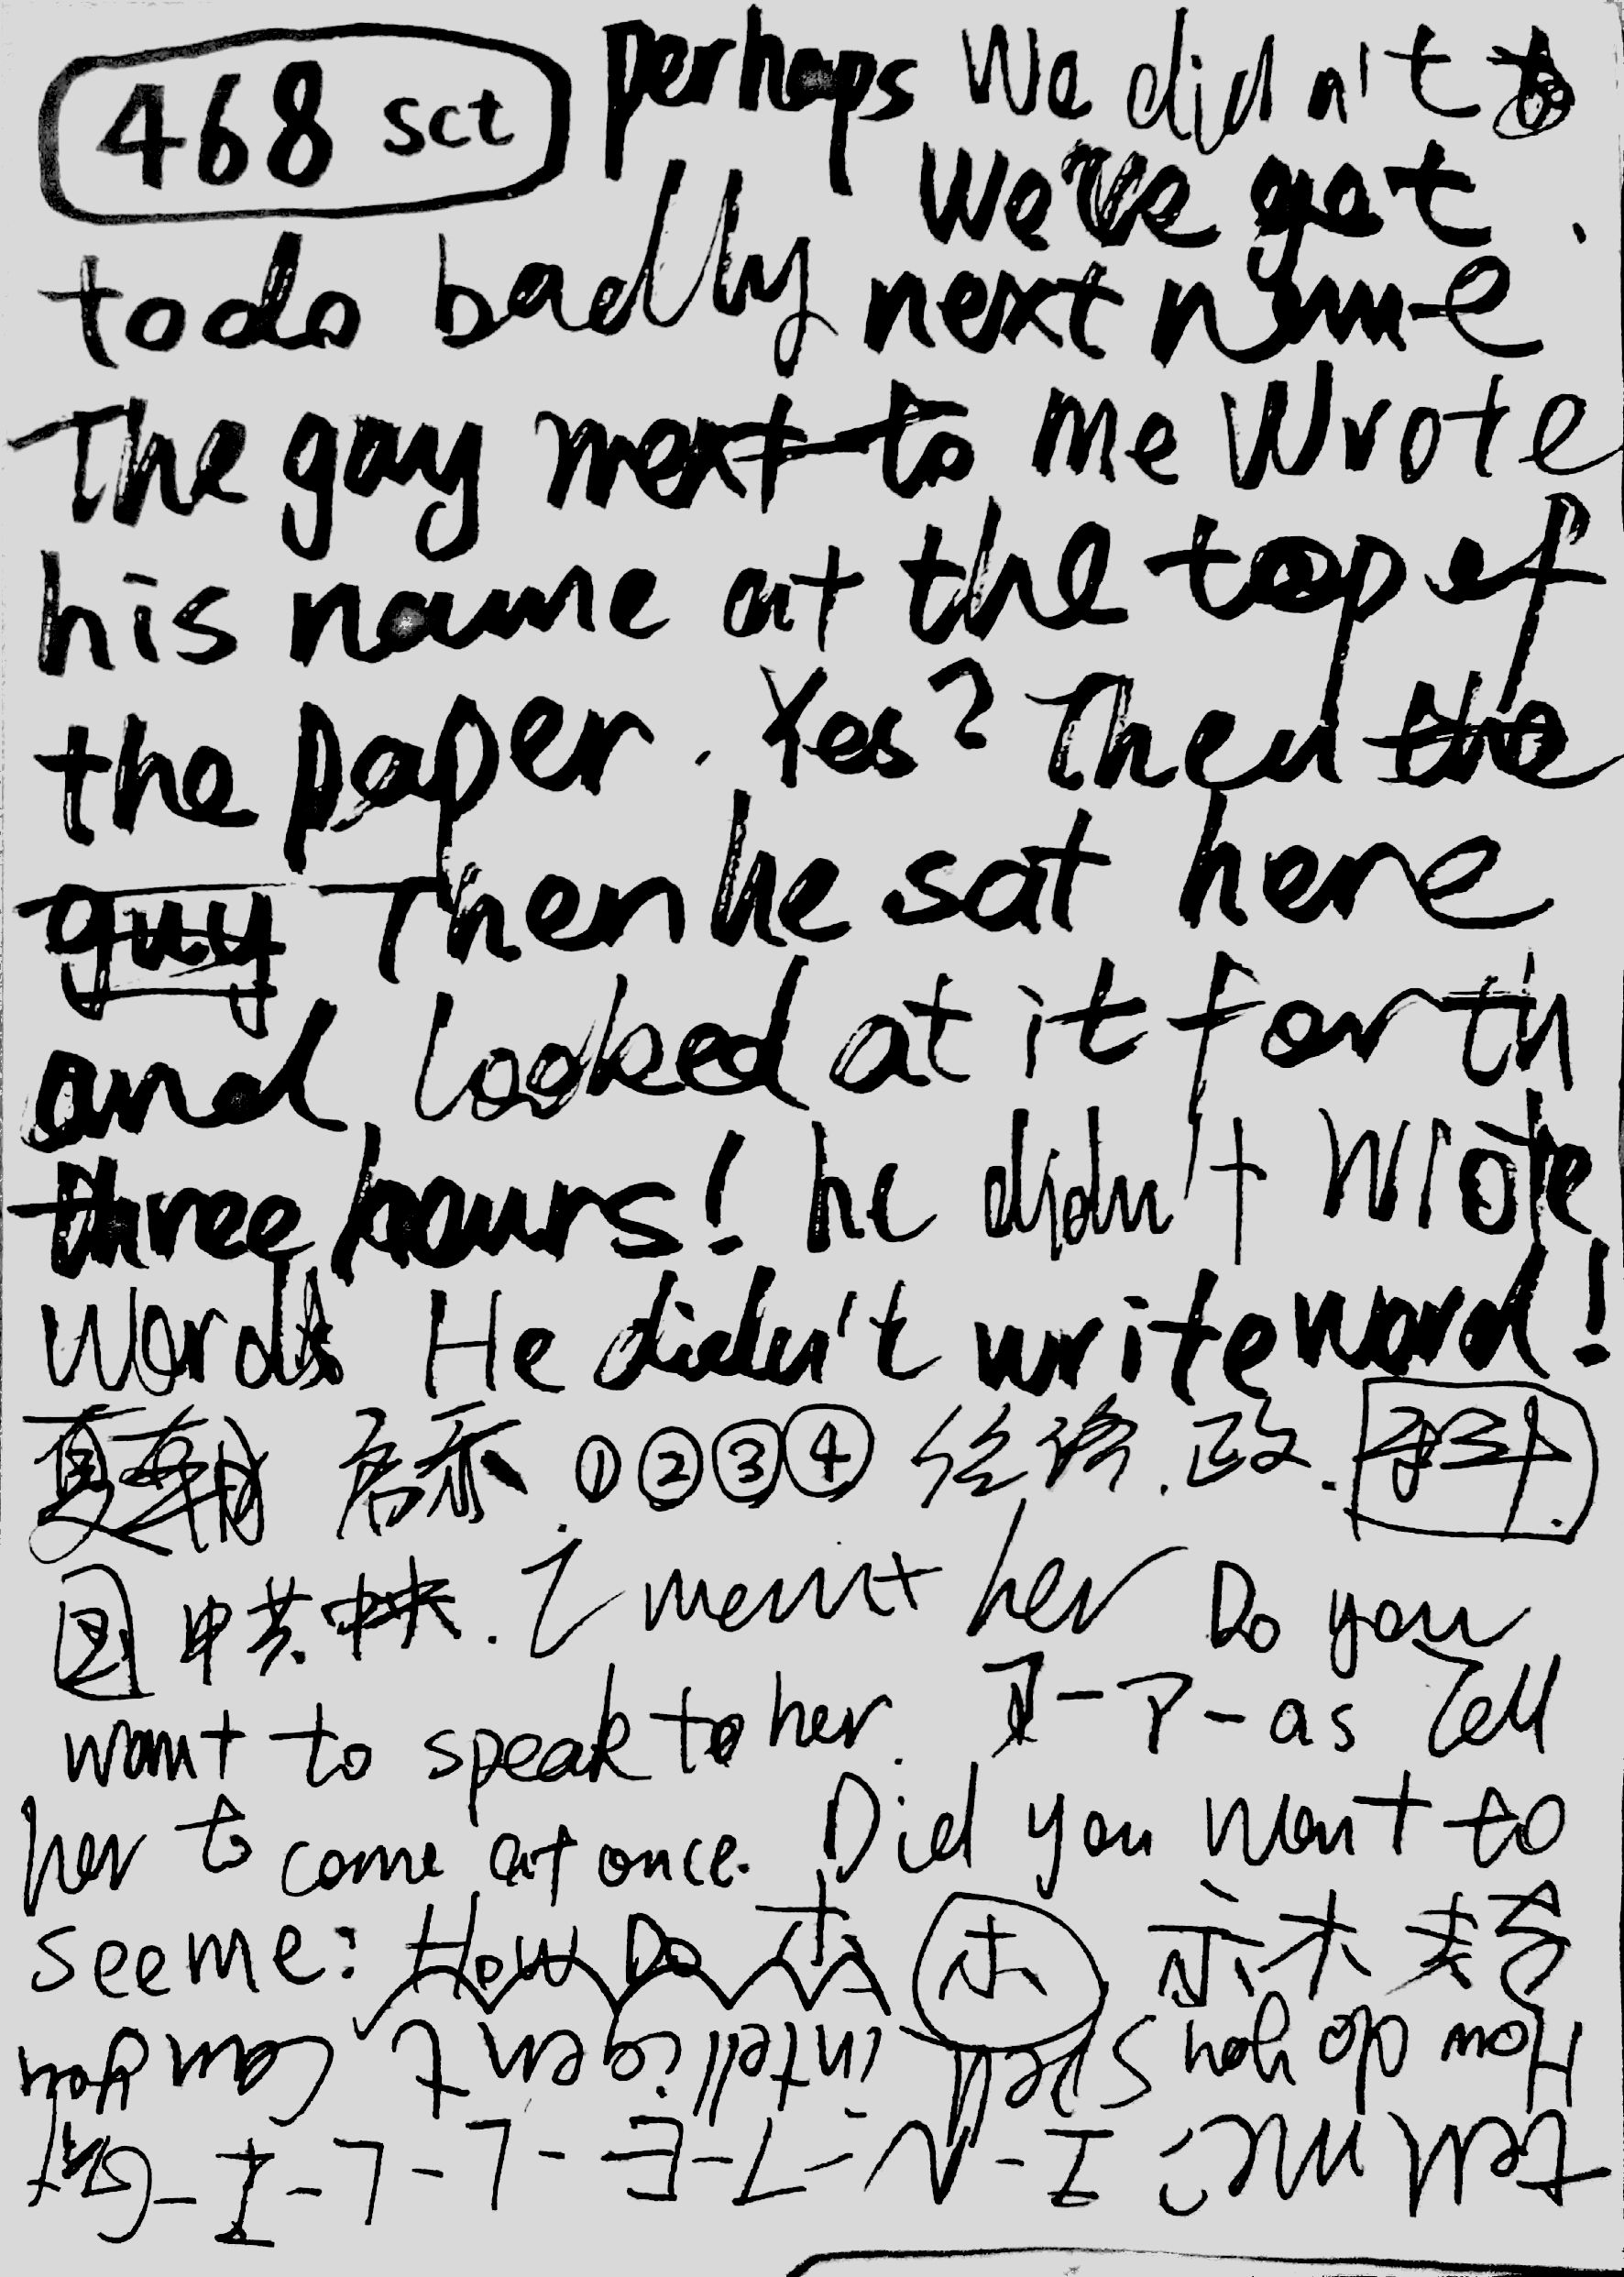 468 sct perhaps We didn't
We've got
todo badlly next name
The gay next to me Wrote
his name at the top of
the paper. Yes? Then the
guy Then he sat here
and looked at it for th
three hours! he didn't Wrote
Words He didn't write word!
启示 ①②③④ 丝路.政.
中共.中央. I meant her Do you
want to speak to her. -P-as Tell
her to come at once. Did you want to
see me: How Do 示
How do you Spell intelligent Can you
tell me? I-N-T-E-L-L-I-G